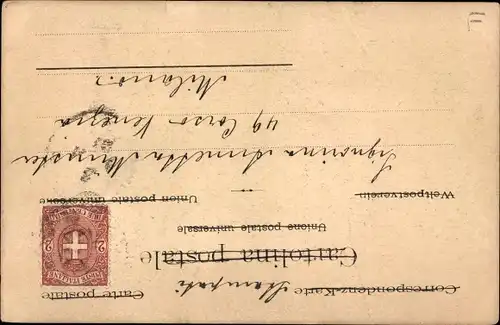 Correspondenz-Karte Stampati Carte postale
Cartolina postale
Unione postale universale
Weltpostverein Union postale universelle
Signorina Annetta
49 Corso Venezia
Milano.
POSTE ITALIANE
2 2